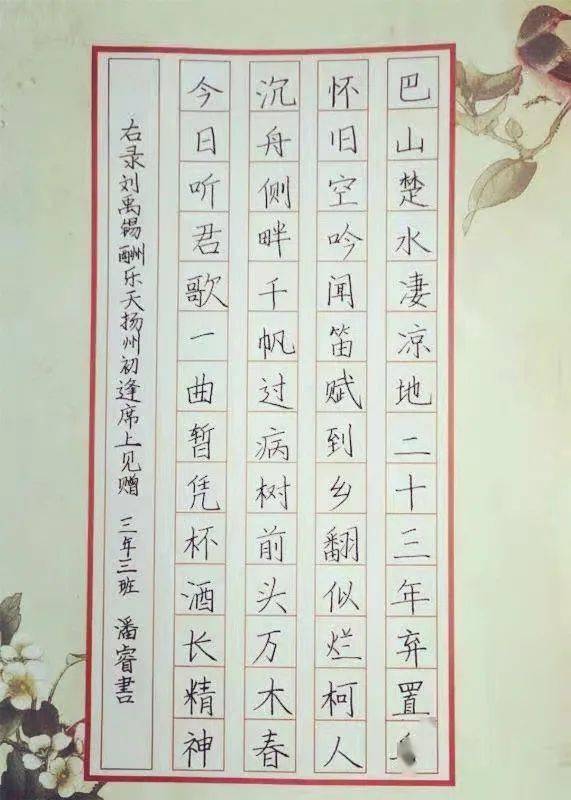 巴山楚水凄凉地二十三年弃置
怀旧空吟闻笛赋到乡翻似烂柯人
沉舟侧畔千帆过病树前头万木春
今日听君歌一曲暂凭杯酒长精神
右录刘禹锡酬乐天扬州初逢席上见赠 三年三班 潘睿書